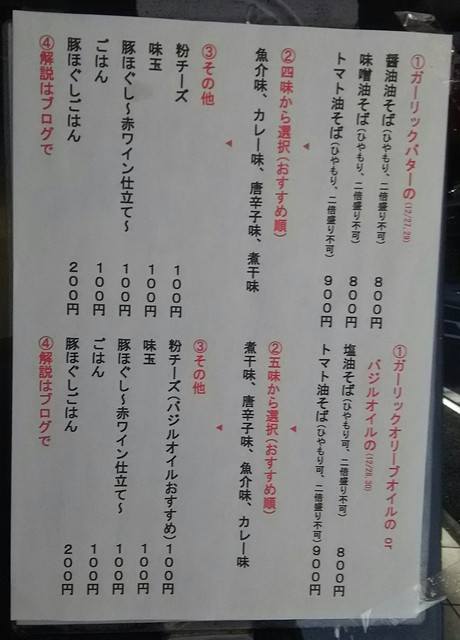 ①ガーリックバターの(12/27,29)
醤油油そば(ひやもり、二倍盛り不可) 800円
味噌油そば(ひやもり、二倍盛り不可) 800円
トマト油そば(ひやもり、二倍盛り不可) 900円
▼
②四味から選択(おすすめ順)
魚介味、カレー味、唐辛子味、煮干味
▼
③その他
粉チーズ 100円
味玉 100円
豚ほぐし～赤ワイン仕立て～ 100円
ごはん 100円
豚ほぐしごはん 200円
④解説はブログで
①ガーリックオリーブオイルの or
バジルオイルの(12/28,30)
塩油そば(ひやもり可、二倍盛り不可) 800円
トマト油そば(ひやもり可、二倍盛り不可) 900円
▼
②五味から選択(おすすめ順)
煮干味、唐辛子味、魚介味、カレー味
▼
③その他
粉チーズ(バジルオイルおすすめ) 100円
味玉 100円
豚ほぐし～赤ワイン仕立て～ 100円
ごはん 100円
豚ほぐしごはん 200円
④解説はブログで